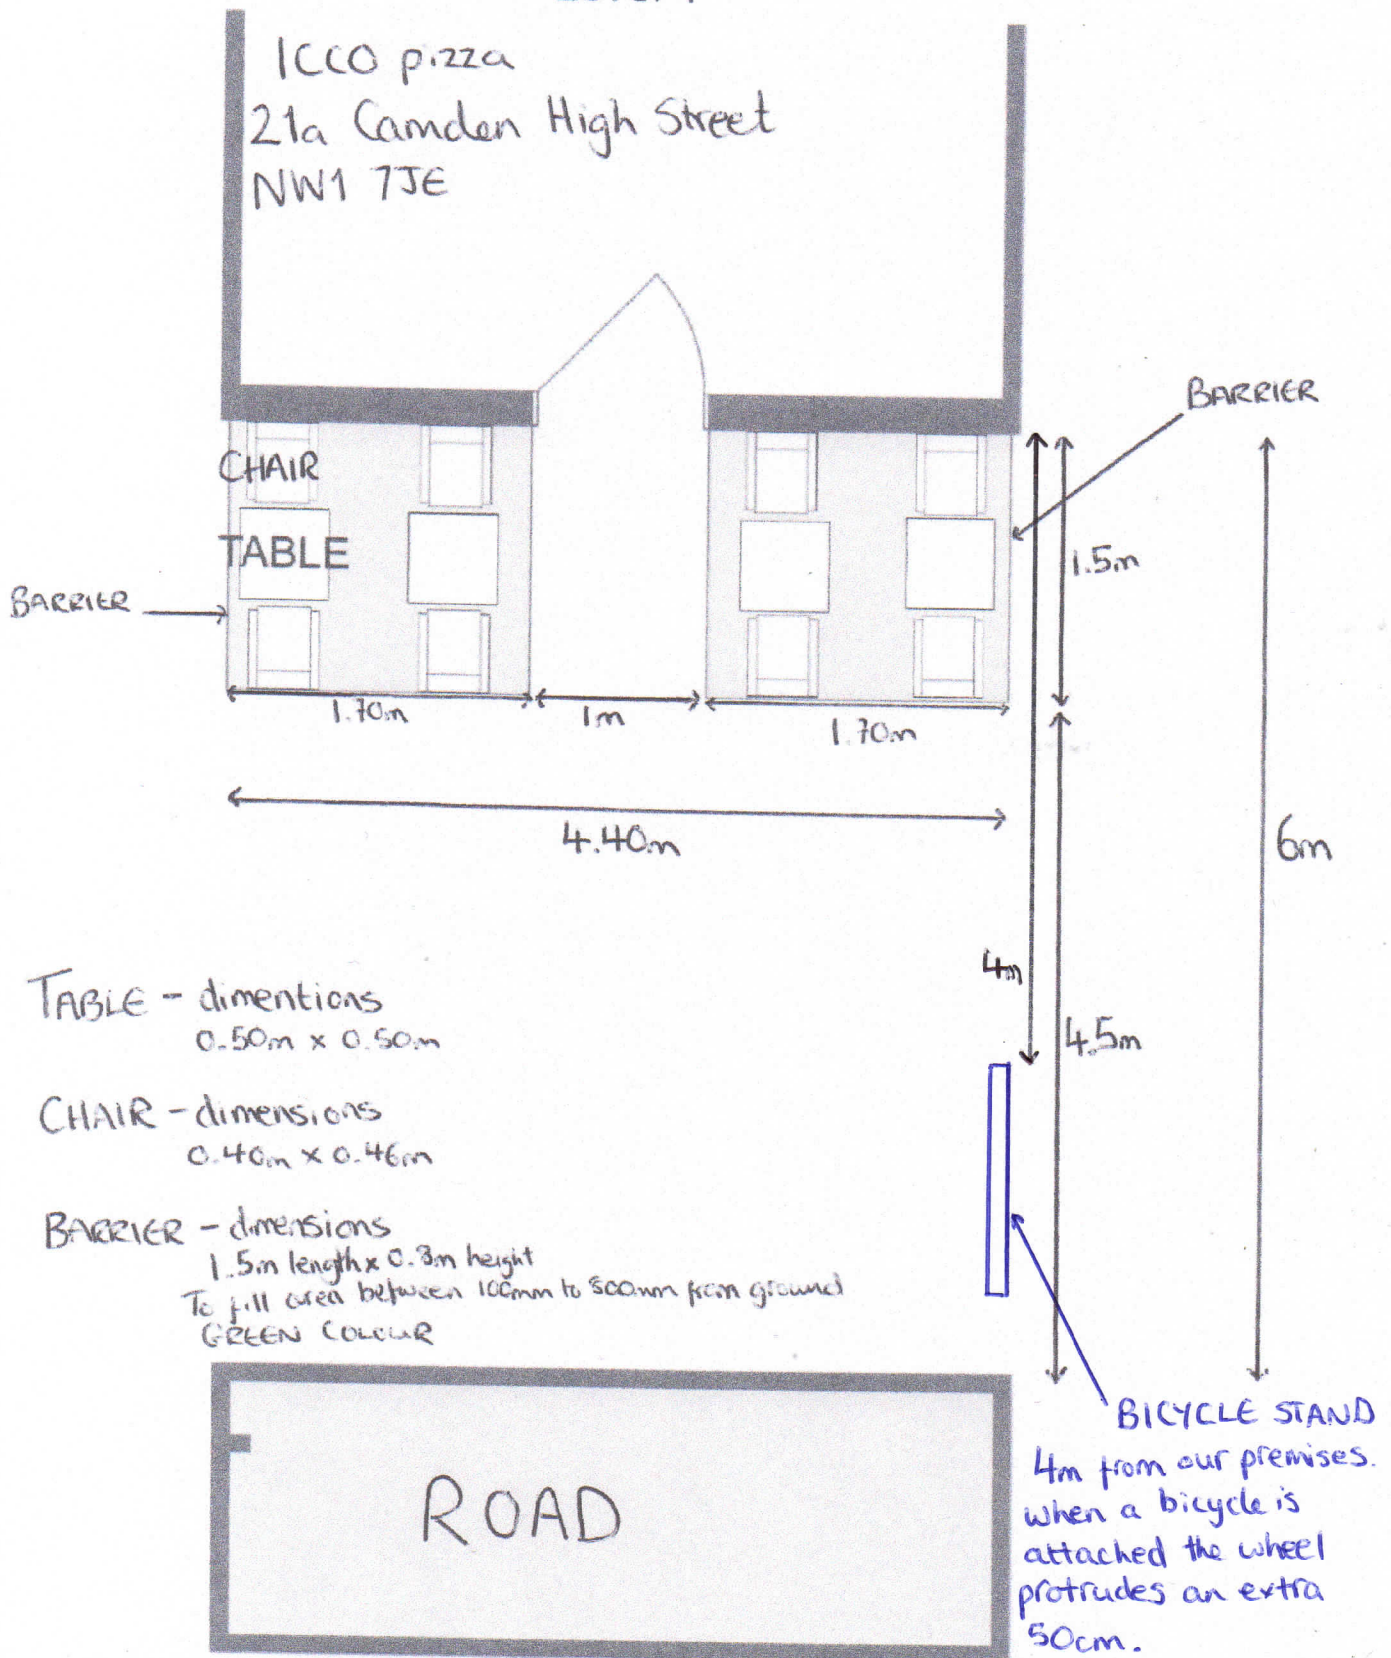 ICCO pizza
21a Camden High Street
NW1 7JE
BARRIER
CHAIR
TABLE
1.5m
BARRIER
1.70m
1m
1.70m
4.40m
6m
4m
4.5m
TABLE - dimentions
0.50m x 0.50m
CHAIR - dimensions
0.40m x 0.46m
BARRIER - dimensions
1.5m length x 0.8m height
To fill area between 100mm to 800mm from ground
GREEN COLOUR
BICYCLE STAND
4m from our premises.
when a bicycle is
attached the wheel
protrudes an extra
50cm.
ROAD